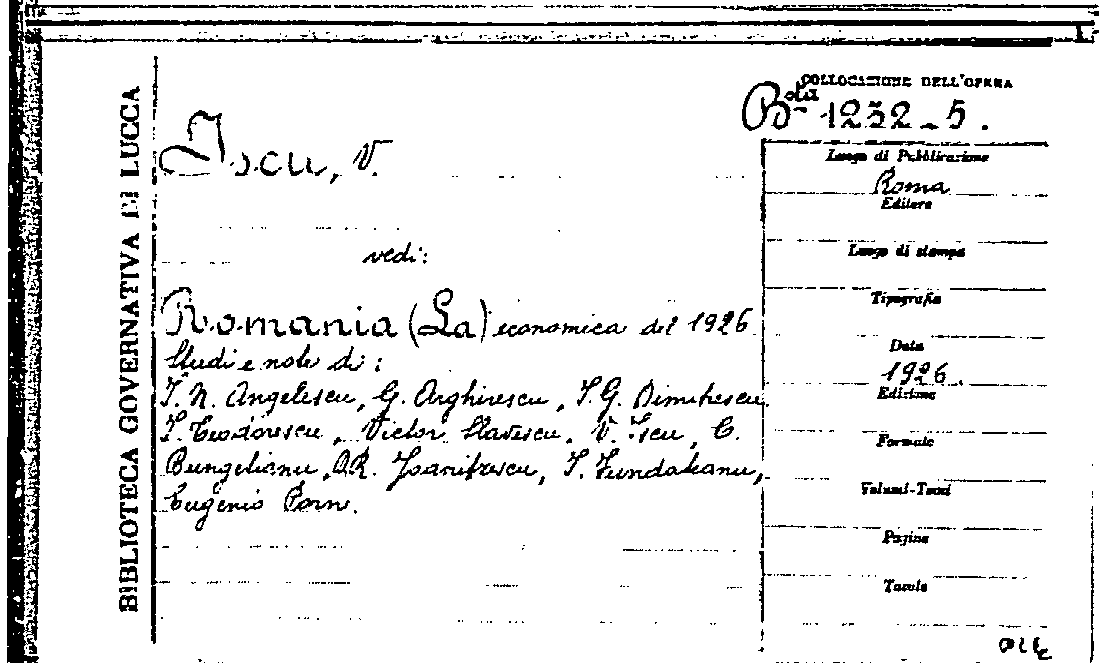 BIBLIOTECA GOVERNATIVA DI LUCCA
COLLOCAZIONE DELL'OPERA
B.ta 1232-5.
Iscu, V.
vedi:
Romania (La) economica del 1926
Studi e note di:
I. N. Angelescu, G. Arghirescu, I. G. Dimitrescu.
I. Teodorescu, Victor Slavescu, V. Iscu, C.
Bungetianu, D.R. Ioanitzescu, I. Fundateanu,
Eugenio Porn.
Luogo di Pubblicazione
Roma
Editore
Luogo di stampa
Tipografia
Data
1926.
Edizione
Formato
Volumi-Tomi
Pagine
Tavole